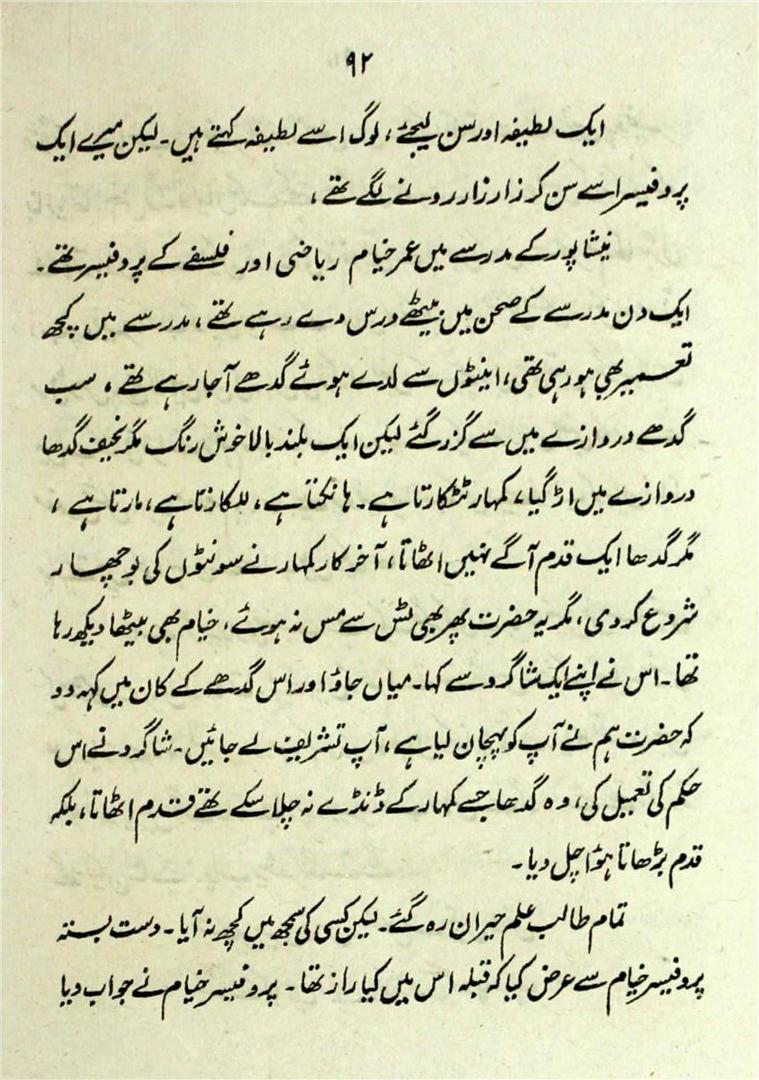 ۹۲
ایک لطیفہ اور سن لیجئے، لوگ اسے لطیفہ کہتے ہیں۔ لیکن میرے ایک
پروفیسر اسے سن کر زار زار رونے لگے تھے،
نیشاپور کے مدرسے میں عمر خیام ریاضی اور فلسفے کے پروفیسر تھے۔
ایک دن مدرسے کے صحن میں بیٹھے درس دے رہے تھے، مدرسے میں کچھ
تعمیر بھی ہو رہی تھی، اینٹوں سے لدے ہوئے گدھے آ جا رہے تھے، سب
گدھے دروازے میں سے گزر گئے لیکن ایک بلند بالا خوش رنگ مگر نحیف گدھا
دروازے میں اڑ گیا، کمہار ٹٹکارتا ہے۔ ہانکتا ہے، للکارتا ہے، مارتا ہے،
مگر گدھا ایک قدم آگے نہیں اٹھاتا، آخر کار کمہار نے سونٹوں کی بوچھار
شروع کر دی، مگر یہ حضرت پھر بھی ٹس سے مس نہ ہوئے، خیام بھی بیٹھا دیکھ رہا
تھا۔ اس نے اپنے ایک شاگرد سے کہا۔ میاں جاؤ اور اس گدھے کے کان میں کہہ دو
کہ حضرت ہم نے آپ کو پہچان لیا ہے، آپ تشریف لے جائیں۔ شاگرد نے اس
حکم کی تعمیل کی، وہ گدھا جسے کمہار کے ڈنڈے نہ چلا سکے تھے قدم اٹھاتا، بلکہ
قدم بڑھاتا ہوا چل دیا۔
تمام طالب علم حیران رہ گئے۔ لیکن کسی کی سمجھ میں کچھ نہ آیا۔ دست بستہ
پروفیسر خیام سے عرض کیا کہ قبلہ اس میں کیا راز تھا۔ پروفیسر خیام نے جواب دیا